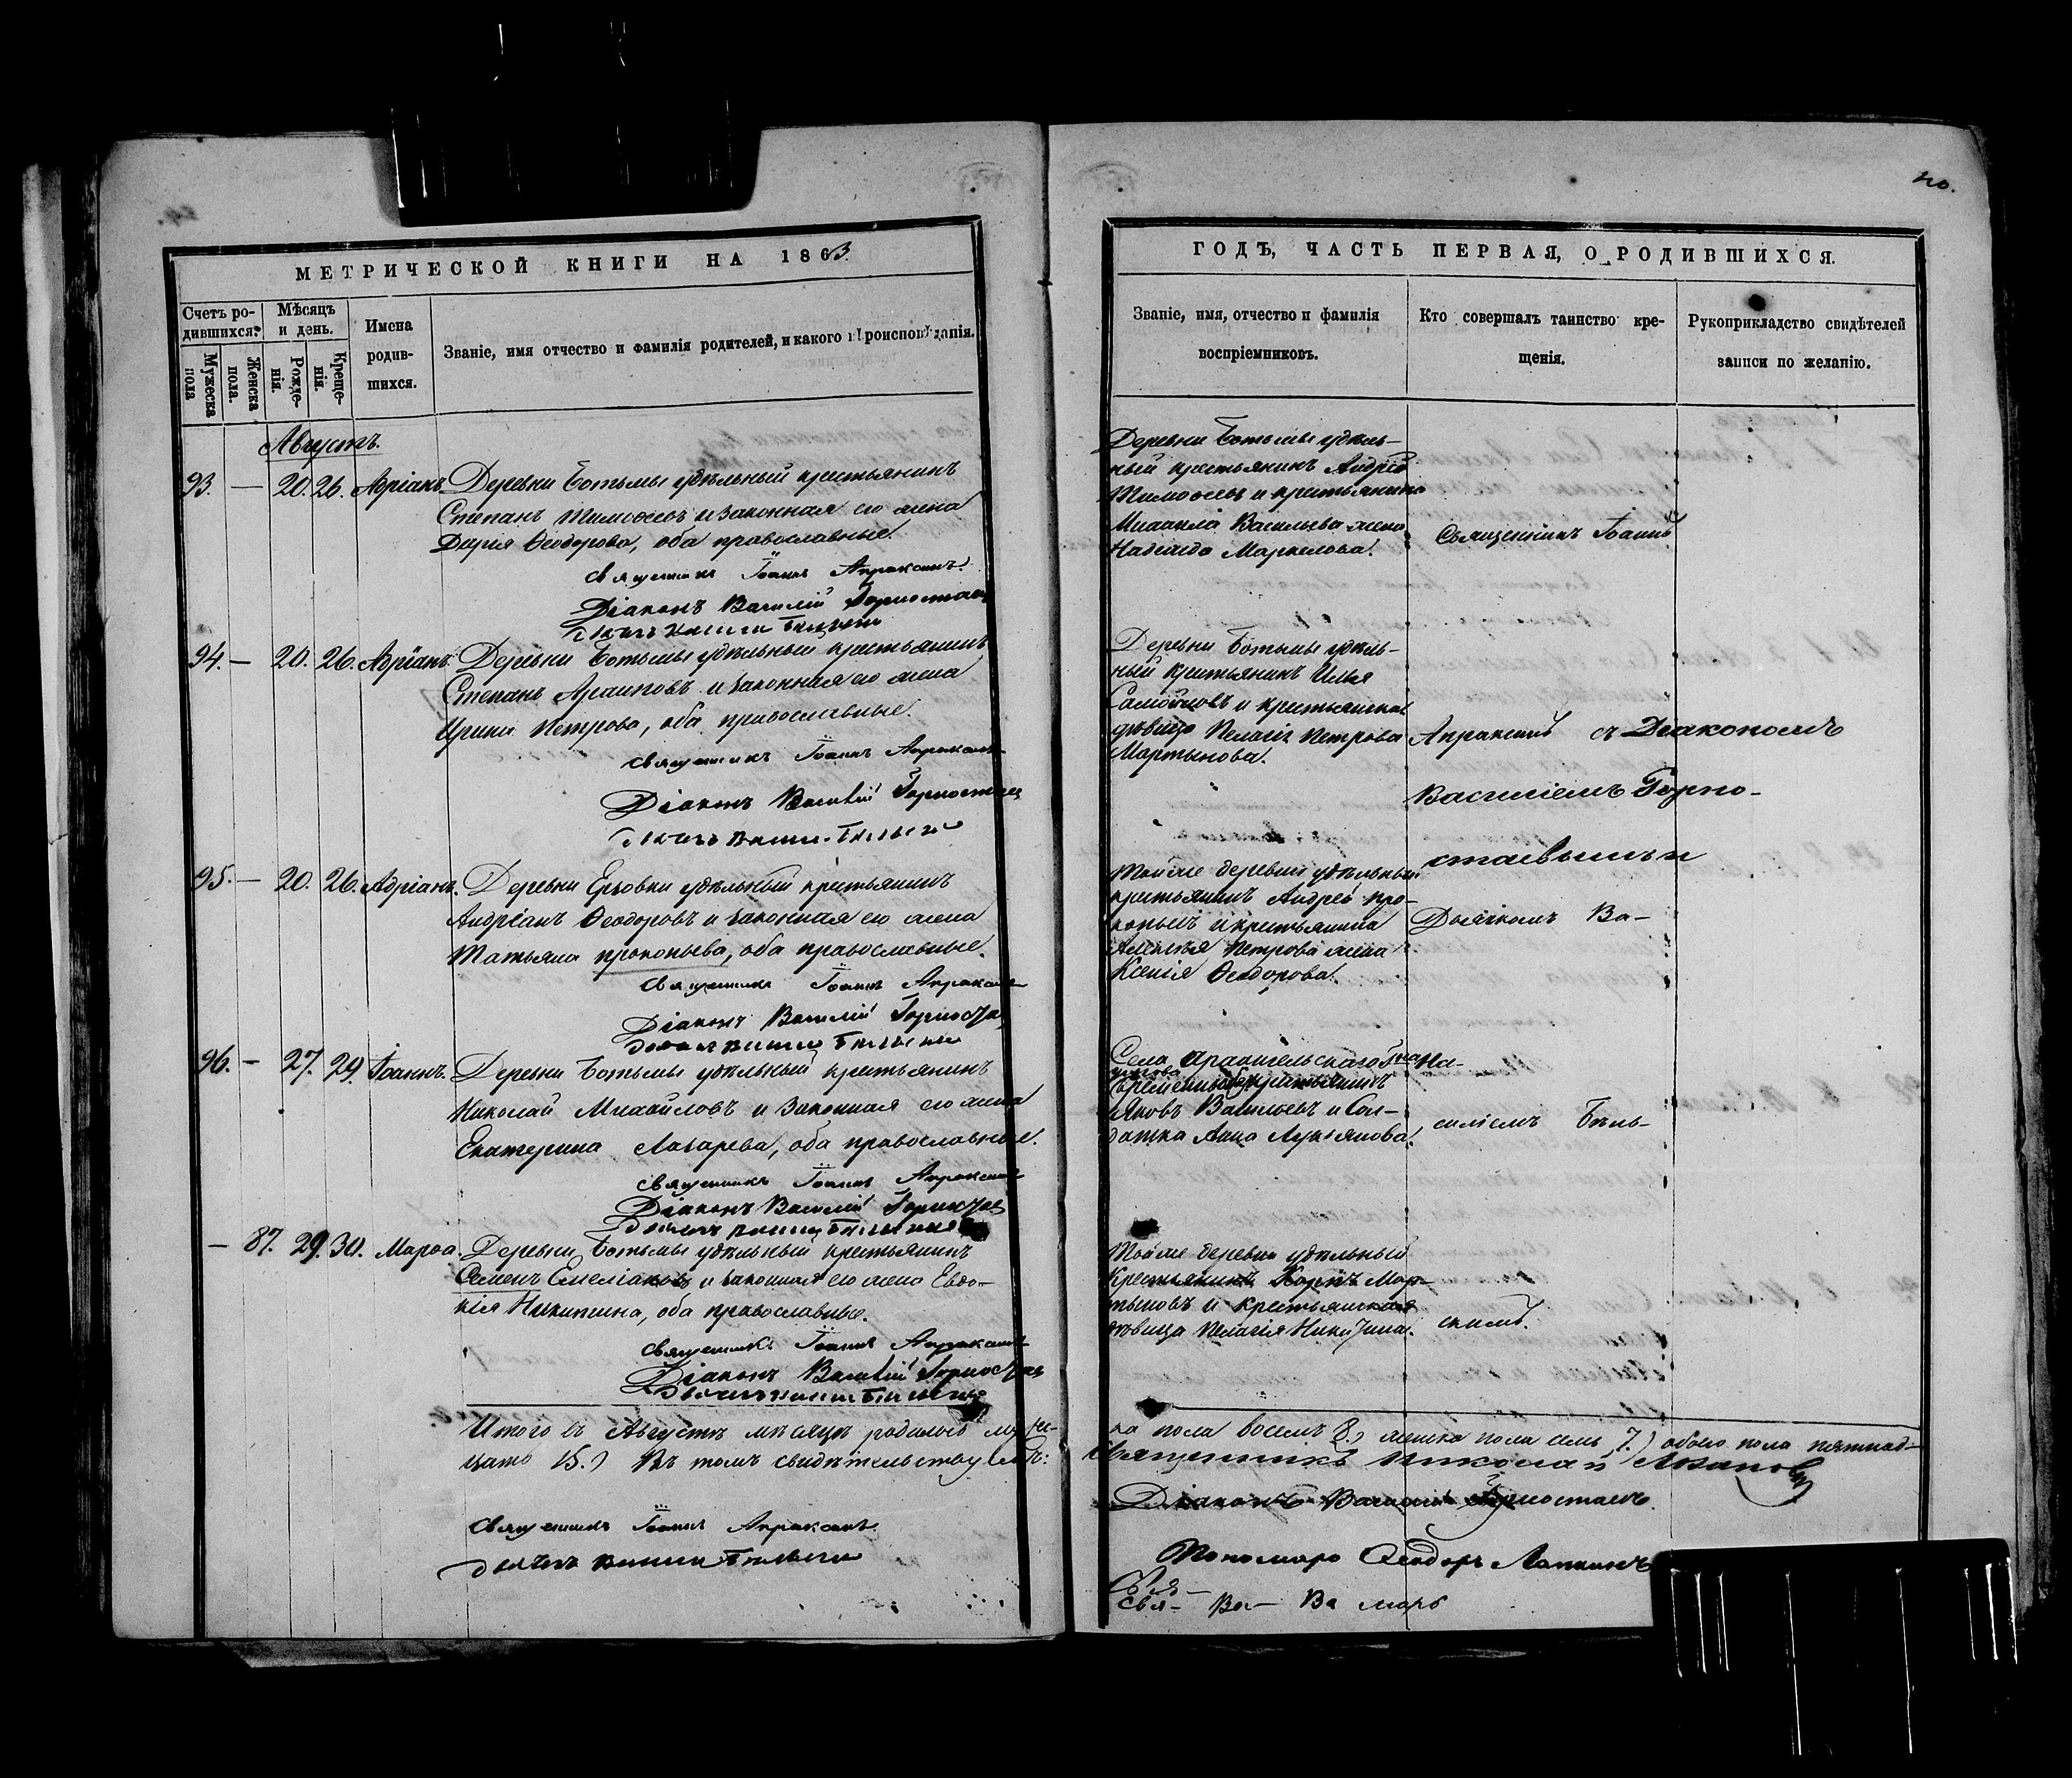 МЕТРИЧЕСКОЙ КНИГИ НА 1863.
Счетъ ро-
дившихся.
Мужеска пола
Женска пола.
Мѣсяцъ
и день.
Рожде-
нія.
Креще-
нія.
Имена
родив-
шихся.
Званіе, имя отчество и фамилія родителей, и какого вѣроисповѣданія.
Августъ.
93. — 20. 26. Адріанъ. Деревни Ботьмы удѣльный крестьянинъ
Степанъ Тимоѳеевъ и законная его жена
Дарья Ѳеодорова, оба православные.
Священникъ Іоаннъ Апраксинъ.
Діаконъ Василій Горностаевъ
94. — 20. 26. Адріанъ. Деревни Ботьмы удѣльный крестьянинъ
Степанъ Архиповъ и законная его жена
Ирина Петрова, оба православные.
Священникъ Іоаннъ Апраксинъ
Діаконъ Василій Горностаевъ
95. — 20. 26. Адріанъ. Деревни Ерзовки удѣльный крестьянинъ
Андріанъ Ѳеодоровъ и законная его жена
Татьяна Прокопьева, оба православные.
Священникъ Іоаннъ Апраксинъ
Діаконъ Василій Горностаевъ
96. — 27. 29. Іоаннъ. Деревни Ботьмы удѣльный крестьянинъ
Николай Михайловъ и законная его жена
Екатерина Лазарева, оба православные.
Священникъ Іоаннъ Апраксинъ
Діаконъ Василій Горностаевъ
— 87. 29. 30. Марѳа. Деревни Ботьмы удѣльный крестьянинъ
Семенъ Емеліановъ и законная его жена Евдо-
кія Никитина, оба православные.
Священникъ Іоаннъ Апраксинъ
Діаконъ Василій Горностаевъ
Итого въ Августѣ мѣсяцѣ родилось мужес-
цать 15.) Въ томъ свидѣтельствуемъ:
Священникъ Іоаннъ Апраксинъ.
ГОДЪ, ЧАСТЬ ПЕРВАЯ, О РОДИВШИХСЯ.
Званіе, имя, отчество и фамилія
воспріемниковъ.
Кто совершалъ таинство кре-
щенія.
Рукоприкладство свидѣтелей
записи по желанію.
Деревни Ботьмы удѣль-
ный крестьянинъ Андрей
Тимоѳеевъ и крестьянина
Михаила Васильева жена
Надежда Маркелова.
Священникъ Іоаннъ
Деревни Ботьмы удѣль-
ный крестьянинъ Илья
Самойловъ и крестьянская
дѣвица Пелагія Петрова
Мартынова.
Апраксинъ съ Діакономъ
Василіемъ Горно-
стаевымъ и
Той же деревни удѣльный
крестьянинъ Андрей Про-
копьевъ и крестьянина
Алексѣя Петрова жена
Ксенія Ѳеодорова.
Дьячкомъ Ва-
Села Архангельскаго
крестьянинъ
Яковъ Васильевъ и Сол-
датка Анна Лукьянова.
силіемъ Бѣль-
Той же деревни удѣльный
Крестьянинъ Карпъ Мар-
тыновъ и крестьянская
дѣвица Пелагія Никитина.
скимъ.
ка пола восемь 8.) женска пола семь 7.) обоего пола пятнад-
Священникъ Николай
Діаконъ Василій Горностаевъ.
Пономарь Ѳеодоръ Лапкинъ